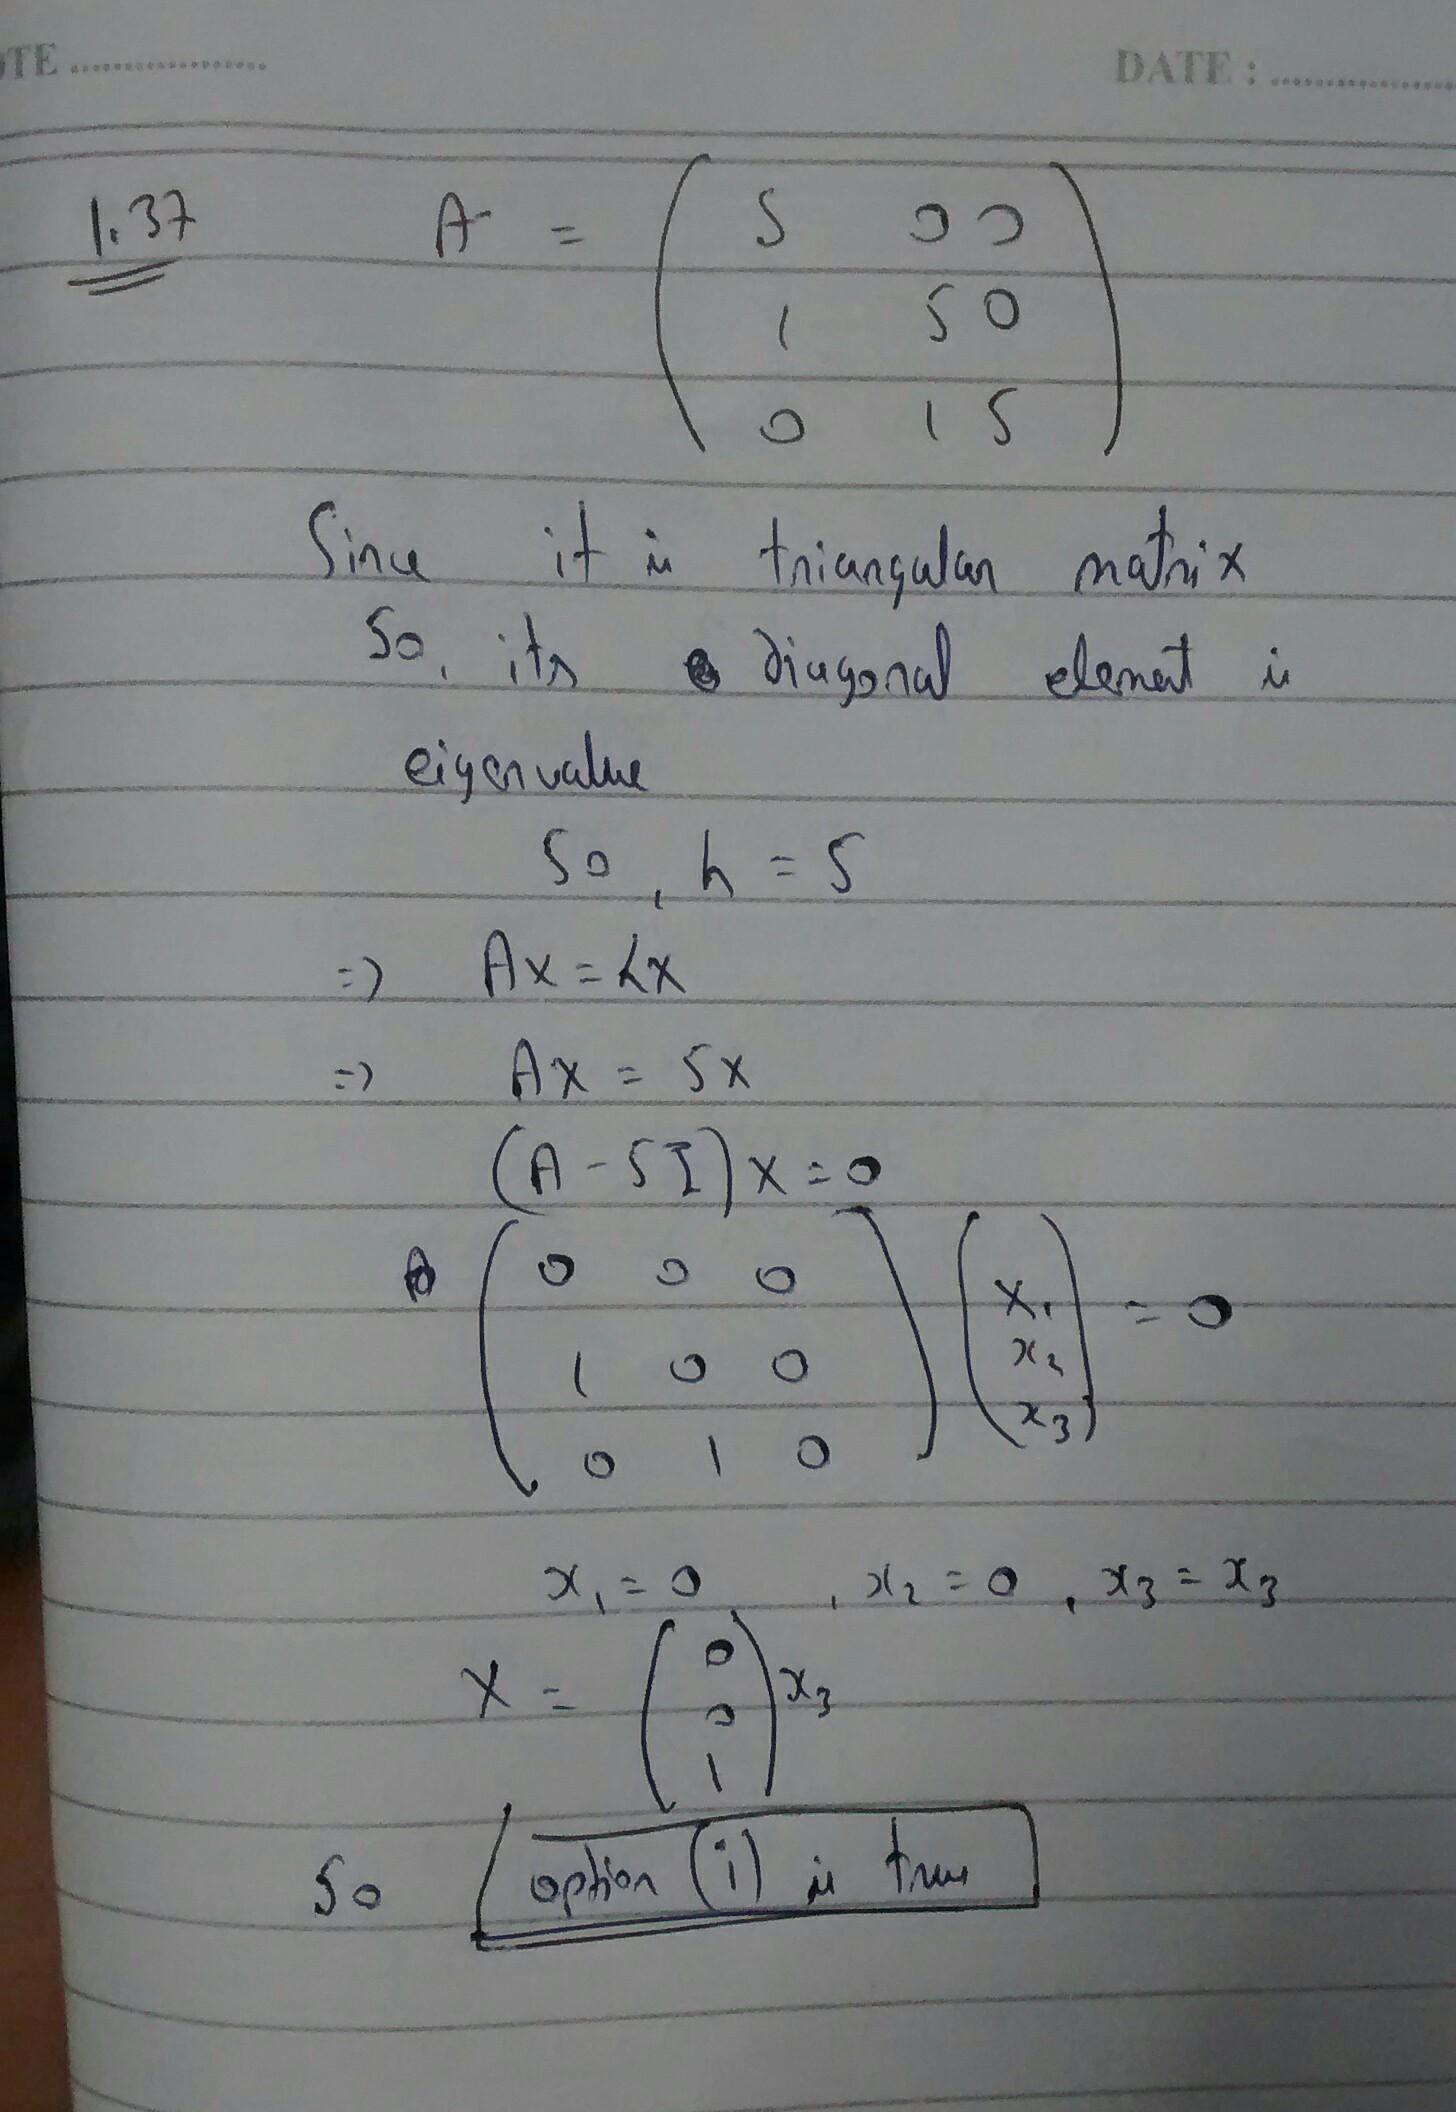 OTE ....................
DATE : ....................
1.37 A = ( 5 0 0
1 5 0
0 1 5 )
Since it is triangular matrix
So, its diagonal element is
eigenvalue
So, λ = 5
=) AX = λX
=) AX = 5X
(A - 5I) X = 0
( 0 0 0
1 0 0
0 1 0 ) ( x1
x2
x3 ) = 0
x1 = 0, x2 = 0, x3 = x3
X = ( 0
0
1 ) x3
So option (i) is true